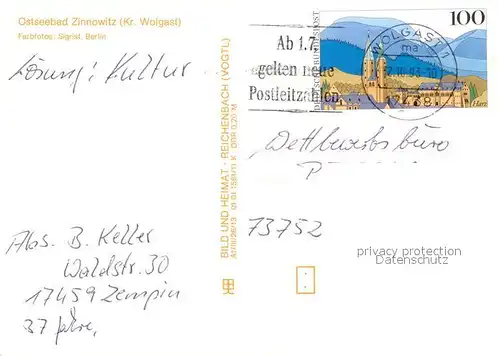 Ostseebad Zinnowitz (Kr. Wolgast)
Farbfotos: Sigrist, Berlin
Lösung: Kultur
Abs. B. Keller
Waldstr. 30
17459 Zempin
37 Jahre,
BILD UND HEIMAT · REICHENBACH (VOGTL)
DDR 0,20 M
Ab 1.7.
gelten neue
Postleitzahlen
WOLGAST 1
ma
DEUTSCHE BUNDESPOST
100
Harz
Wettbewerbsbüro
73752
privacy protection
Datenschutz